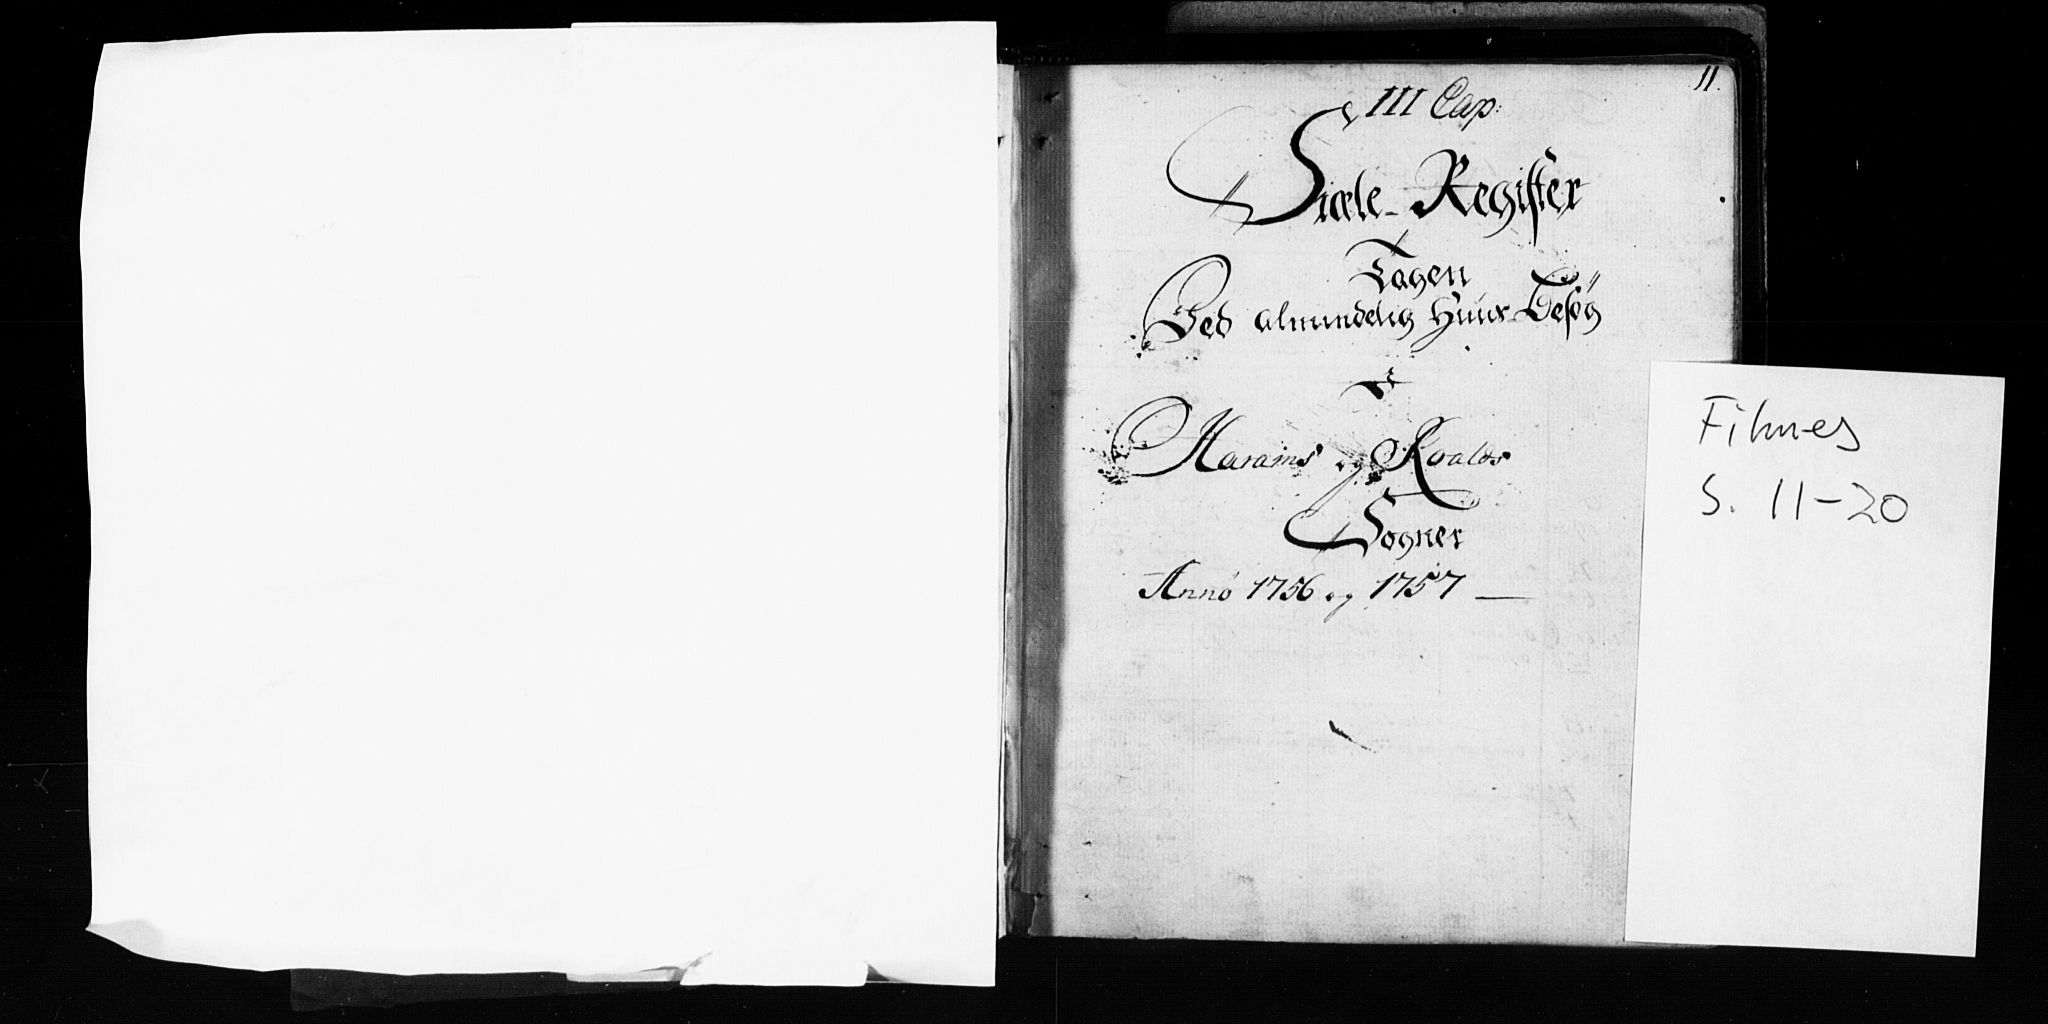 11.
III Cap:
Siæle-Register
Tagen
Ved almindelig Huus-Besøg
I
Harams og Roalds
Sogner
Anno 1756 og 1757 —
Filmes
S. 11-20